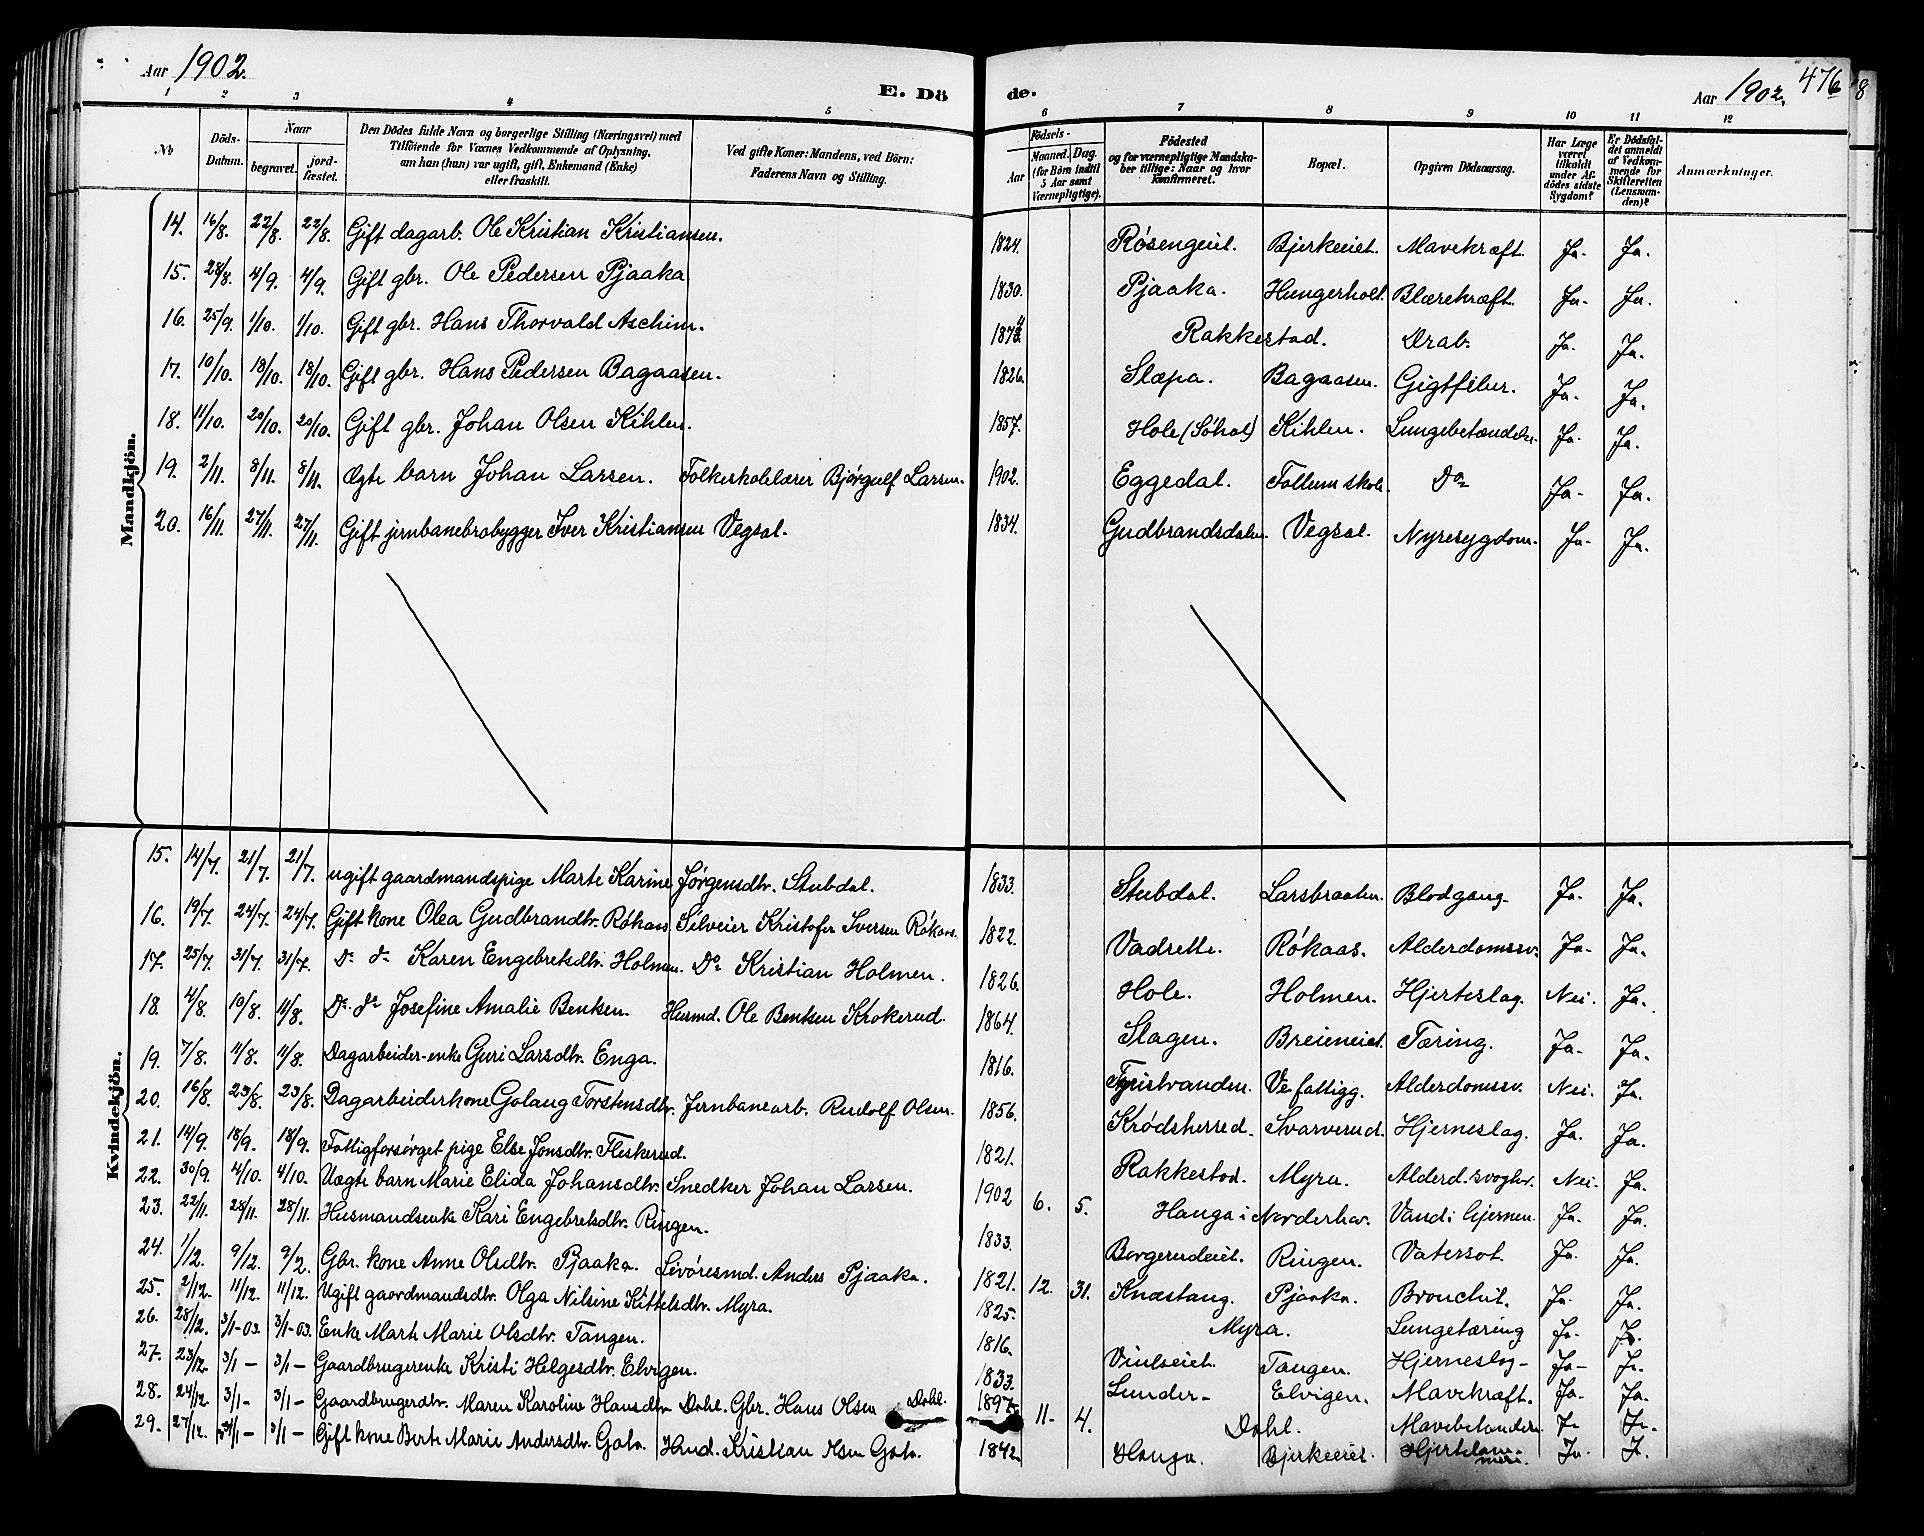 Aar 1902.
E. Dö
de.
Aar 1902.
476
1 2 3 4 5 6 7 8 9 10 11 12
No
Döds-Datum.
Naar
begravet.
jord-fæstet.
Den Dödes fulde Navn og borgerlige Stilling (Næringsvei) med Tilföiende for Voxnes Vedkommende af Oplysning, om han (hun) var ugift, gift, Enkemand (Enke) eller fraskilt.
Ved gifte Koner: Mandens, ved Börn: Faderens Navn og Stilling.
Födsels-
Aar
Maaned. Dag.
(for Börn indtil 5 Aar samt Værnepligtige).
Födested og for værnepligtige Mandskaber tillige: Naar og hvor Konfirmeret.
Bopæl.
Opgiven Dödsaarsag.
Har Læge været tilkaldt under Afdödes sidste Sygdom?
Er Dödsfaldet anmeldt af Vedkommende for Skifteretten (Lensmanden)?
Anmærkninger.
Mandkjön.
14. 16/8. 22/8. 22/8. Gift dagarb. Ole Kristian Kristiansen. 1824. Røsengeiet. Bjerkeeiet. Mavekræft. Ja. Ja.
15. 28/8. 4/9. 4/9. Gift gbr. Ole Pedersen Pjaaka 1830. Pjaaka. Hungerholt. Blærekræft. Ja. Ja.
16. 25/9. 1/10. 1/10. Gift gbr. Hans Thorvald Aschim. Rakkestad. Drab. Ja. Ja.
17. 10/10. 18/10. 18/10. Gift gbr. Hans Pedersen Bagaasen. 1826. Slæpa. Bagaasen. Gigtfeber. Ja. Ja.
18. 11/10. 20/10. 20/10. Gift gbr. Johan Olsen Kihlen. 1857. Hole (Søhol) Kihlen. Lungebetændelse. Ja. Ja.
19. 2/11. 8/11. 8/11. Ægte barn Johan Larsen. Folkeskolelærer Bjørgulf Larsen. 1902. Eggedal. Follum skole. Do Ja. Ja.
20. 16/11. 27/11. 27/11. Gift jernbanebrobygger Iver Kristiansen Vegsal. 1834. Gudbrandsdalen. Vegsal. Nyresygdom. Ja. Ja.
Kvindekjön.
15. 14/7. 21/7. 21/7. ugift gaardmandspige Marte Karine Jørgensdtr. Stubdal. 1833. Stubdal. Larsbraaten. Blodgang. Ja. Ja.
16. 19/7. 24/7. 24/7. Gift kone Olea Gudbrandtr. Røkaas Selveier Kristofer Iversen Røkaas. 1822. Vadsette. Røkaas. Alderdomssv. Ja. Ja.
17. 25/7. 31/7. 31/7. Do do Karen Engebretsdtr. Holmen. Do Kristian Holmen. 1826. Hole. Holmen. Hjerteslag. Nei. Ja.
18. 4/8. 10/8. 11/8. Do do Josefine Amalie Bentsen. Husmd. Ole Bentsen Krokerud. 1864. Slagen. Breieneiet. Tæring. Ja. Ja.
19. 7/8. 11/8. 11/8. Dagarbeider-enke Guri Larsdtr. Enga. 1816. Tyristranden. Ve fattigg. Alderdomssv. Nei. Ja.
20. 16/8. 23/8. 23/8. Dagarbeiderkone Golaug Torstensdtr. Jernbanearb. Rudolf Olsen. 1856. Krødsherred. Svarverud. Hjerneslag. Ja. Ja.
21. 14/9. 18/9. 18/9. Fattigforsørget pige Else Jonsdtr. Fleskerud. 1821. Rakkestad. Myra. Alderd. svaghd. Nei. Ja.
22. 30/9. 4/10. 4/10. Uægte barn Marie Elida Johansdtr. Snedker Johan Larsen. 1902 6. 5. Hanga i Norderhov. Vand i hjernen. Ja. Ja.
23. 22/11. 28/11. 28/11. Husmandsenke Kari Engebretsdtr. Ringen. 1833. Borgerudeiet. Ringen. Vatersot. Ja. Ja.
24. 1/12. 9/12. 9/2. Gbr. kone Anne Olsdtr. Pjaaka. Livøresmd. Anders Pjaaka. 1821. 12. 31. Knæstang. Pjaaka. Bronchit. Ja. Ja.
25. 2/12. 11/12. 11/12. Ugift gaardmandsdtr. Olga Nilsine Kittelsdtr. Myra. 1825. Myra. Lungetæring Ja. Ja.
26. 28/12. 3/1-03. 3/1-03. Enke Marte Marie Olsdtr. Tangen. 1816. Viulseiet. Tangen. Hjerneslag Ja Ja.
27. 23/12 3/1 – 3/1 – Gaardbrugerenke Kristi Helgesdtr. Elvigen. 1833. Lunder Elvigen. Mavekræft. Ja. Ja.
28. 24/12 3/1 – 3/1 – Gaardbrugerdtr. Maren Karoline Hansdtr Dahl. Gbr. Hans Olsen Dahl. 1897. 11 4. Dahl. Mavebetændelse Ja Ja.
29. 27/12. 3/1 – 3/1 – Gift kone Berte Marie Andersdtr. Gata. Husd. Kristian Olsen Gata. 1842. Hanga. Bjerkeeiet. Hjertelammelse. Ja. J.